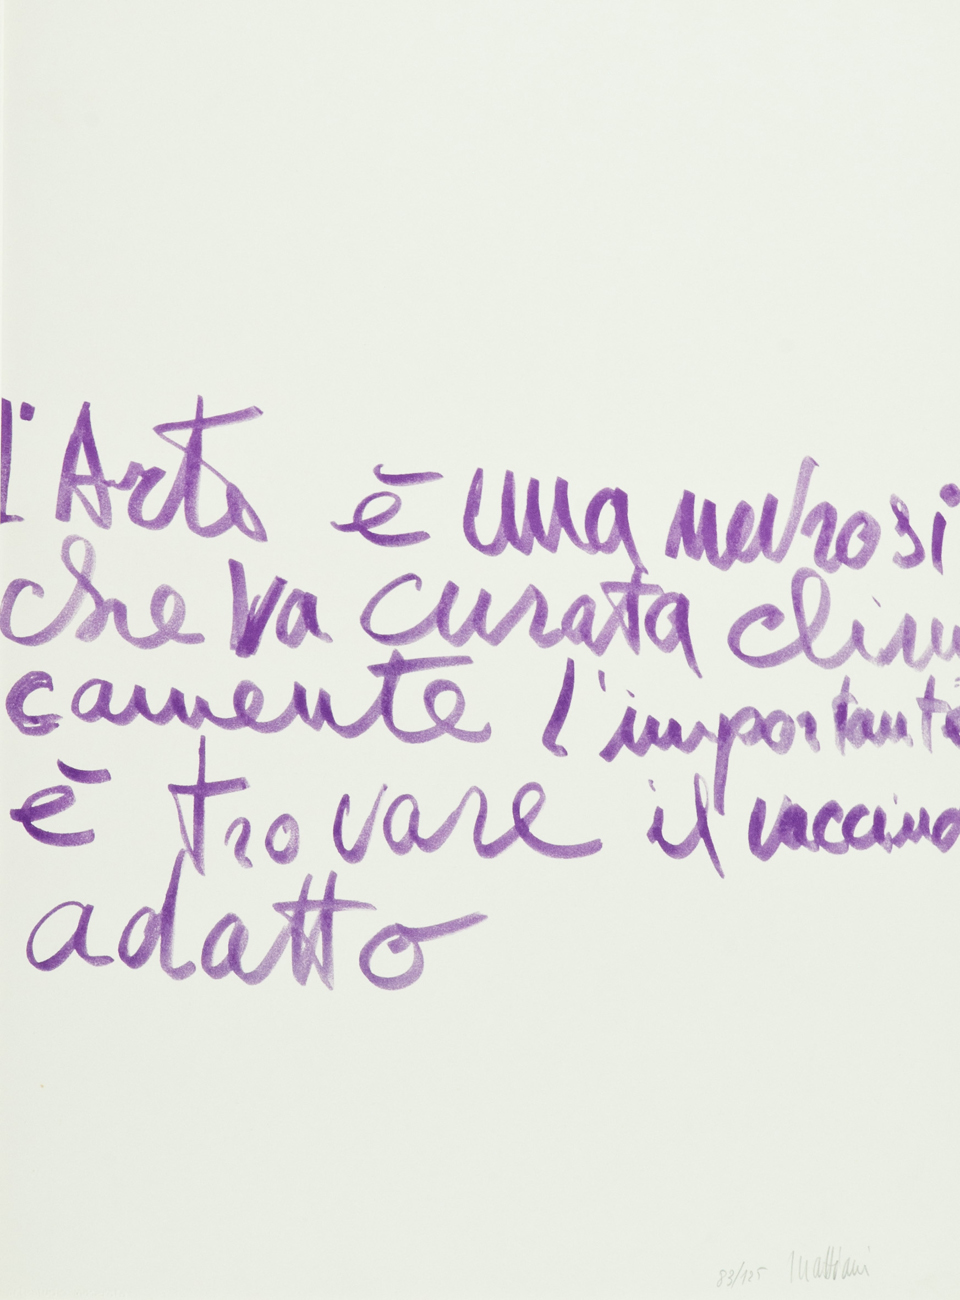 l'Arte è una nevrosi
che va curata clini
camente l'importante
è trovare il vaccino
adatto
83/125